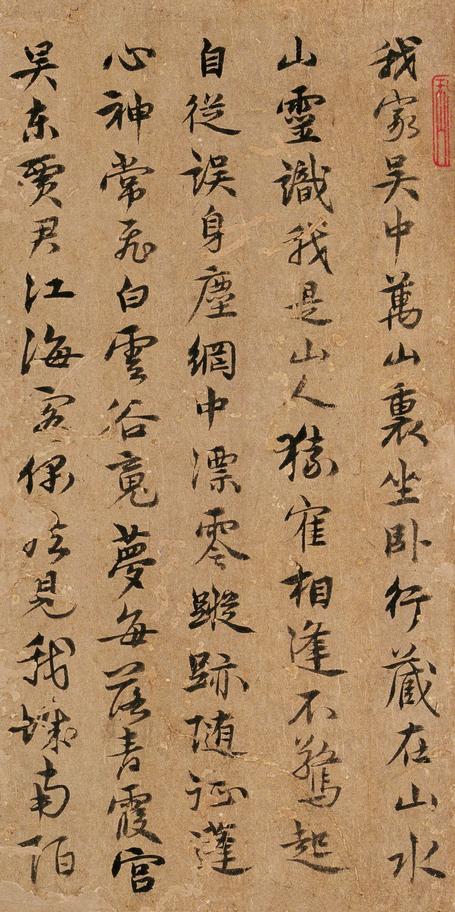 我家吴中萬山裏坐卧行藏在山水
山靈識我是山人猿寉相逢不驚起
自從誤身塵網中漂零蹤跡随征蓬
心神常飛白雲谷䰟夢每落青霞宮
吴東賈君江海客偶然見我城南陌